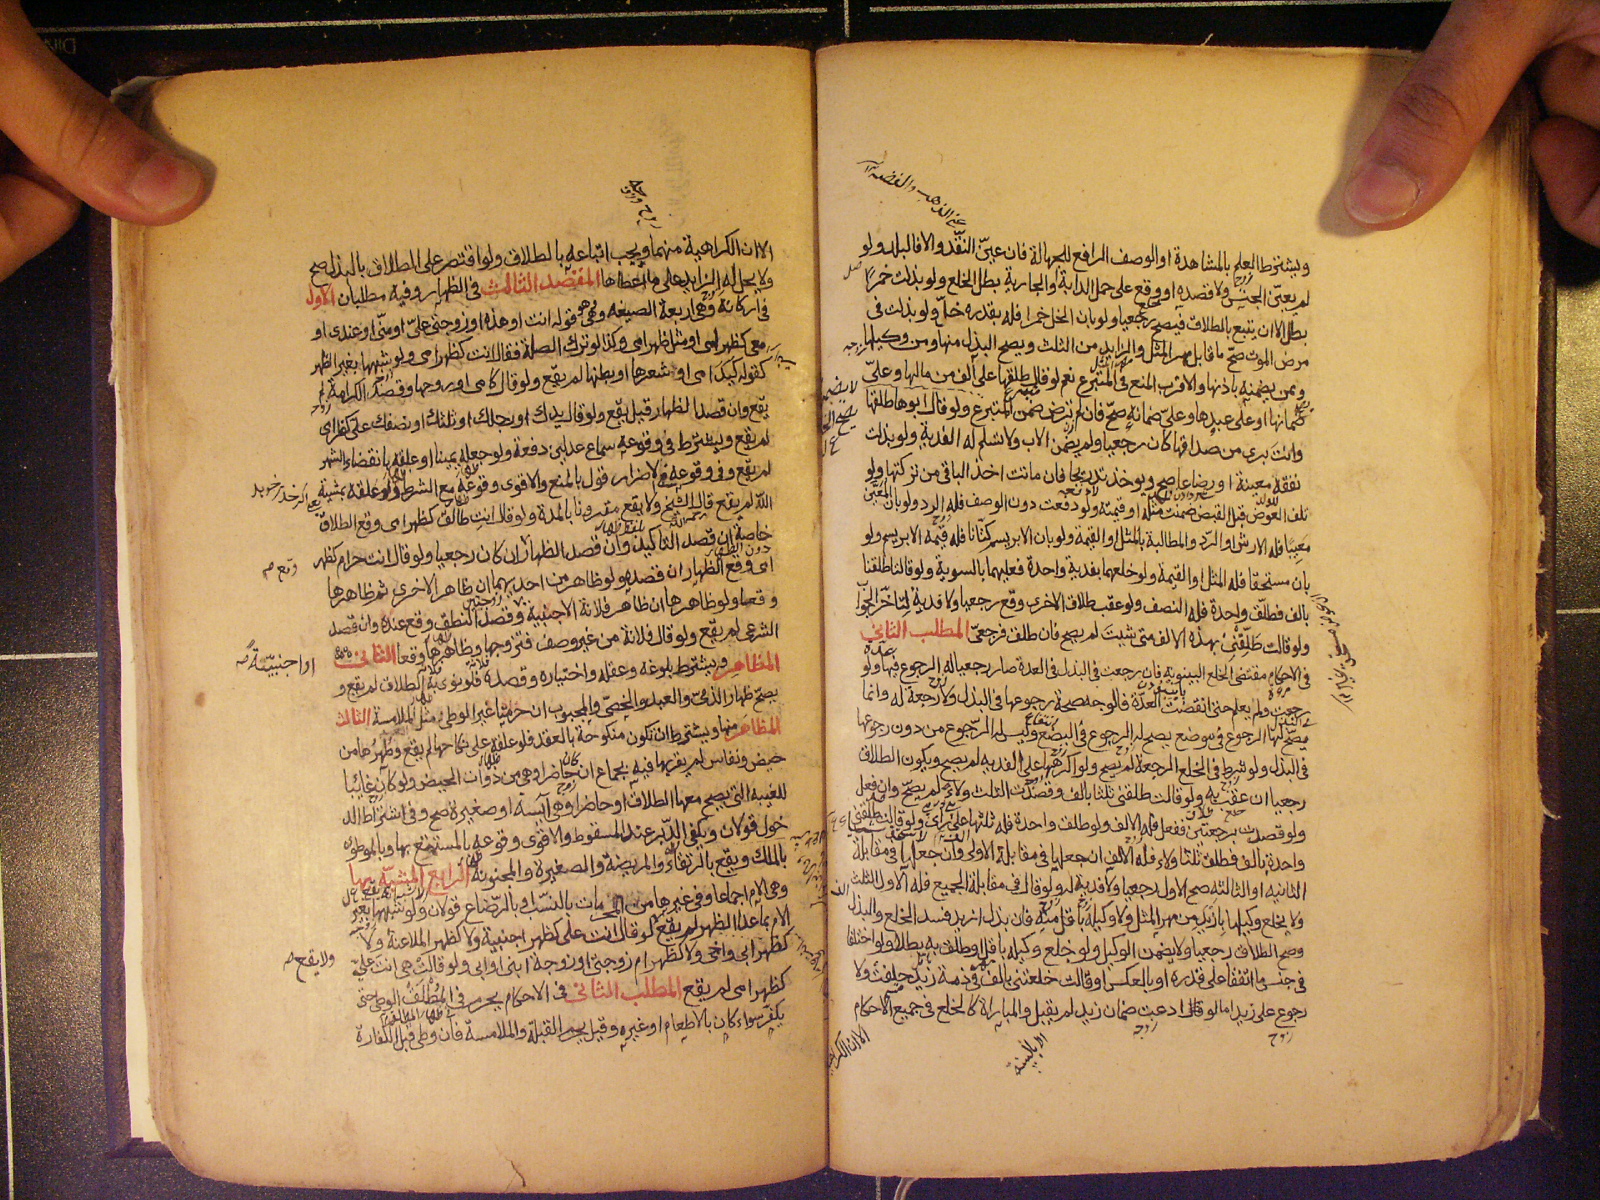 ويشترط العلم بالمشاهدة او الوصف الرافع للجهالة فان عين النقد والا فالبلد ولو
لم يعين الجنس ولا قصده او وقع على حمل الدابة والجارية بطل الخلع ولو بذلت خمرا
بطل الا ان يتبع بالطلاق فيصح رجعيا ولو بان الخل خمرا فله بقدره خل ولو بذلت في
مرض الموت صح ما قابل مهر المثل والزايد من الثلث ويصح البذل منها ومن وكيلها
وممن يضمنه باذنها والاقرب المنع في المتبرع نعم لو قال طلقها على الف من مالها وعلي
ضمانها او على عبدها وعلي ضمانه صح فان لم ترض ضمن المتبرع ولو قال ابوها طلقها
وانت بري من صداقها كان رجعيا ولم يضمن الاب ولا تسلم له الفدية ولو بذلت
نفقة معينة او رضاعا صح ويوخذ تدريجا فان ماتت اخذ الباقي من تركتها ولو
تلف العوض قبل القبض ضمنت مثله او قيمته ولو دفعت دون الوصف فله الرد ولو بان المعين
معيبا فله الارش او الرد والمطالبة بالمثل او القيمة ولو بان الابريسم كتانا فله قيمة الابريسم ولو
بان مستحقا فله المثل او القيمة ولو خلعهما بفدية واحدة فعليهما بالسوية ولو قالتا طلقنا
بالف فطلق واحدة فله النصف ولو عقب طلاق الاخرى وقع رجعيا ولا فدية لتاخر الجواب
ولو قالت طلقني بهذه الالف متى شئت لم يصح فان طلق فرجعي المطلب الثاني
في الاحكام مقتضى الخلع البينونة فان رجعت في البذل في العدة صار رجعيا له الرجوع فيها ولو
رجعت ولم يعلم حتى انقضت العدة فالوجه صحة رجوعها في البذل ولا رجعة له وانما
يصح لها الرجوع في موضع يصح له الرجوع في البضع وليس له الرجوع من دون رجوعها
في البذل ولو شرط في الخلع الرجعة لم يصح ولو اكرهها على الفدية لم يصح ويكون الطلاق
رجعيا ان عقب به ولو قالت طلقني ثلثا بالف وقصدت الثلث ولاء لم يصح وان فعل
ولو قصدت برجعتين ففعل فله الالف ولو طلف واحدة فله ثلثها على راي ولو قالت طلقني
واحدة بالف فطلق ثلثا ولاء فله الالف ان جعلها في مقابلة الاولى وان جعلها في مقابلة
الثانية او الثالثة صح الاول رجعيا ولا فدية له ولو قال في مقابلة الجميع فله الاول الثلث
ولا يخلع وكيلها بازيد من مهر المثل ولا وكيله باقل منه فان بذل ازيد فسد الخلع والبذل
وصح الطلاق رجعيا ولا يضمن الوكيل ولو خلع وكيله باقل وطلق به بطلا ولو اختلفا
في جنس ما اتفقا على قدره او بالعكس او قالت خلعتني بالف في ذمة زيد حلفت ولا
رجوع على زيد اما لو قال ادعت ضمان زيد لم يقبل والمباراة كالخلع في جميع الاحكام
الا ان الكراهية
الا ان الكراهية منهما ويجب اتباعه بالطلاق ولو اقتصر على الطلاق بالبذل صح
ولا يحل له الزايد على ما اعطاها المقصد الثالث في الظهار وفيه مطلبان الاول
في اركانه وهي اربعة الصيغة وهي قوله انت او هذه او زوجتي علي او مني او عندي او
معي كظهر امي او مثل ظهر امي وكذا لو ترك الصلة فقال انت كظهر امي ولو شبهها بغير الظهر
كقوله كيد امي او شعرها او بطنها لم يقع ولو قال كامي او روحها وقصد الكرامة لم
يقع وان قصد الظهار قيل يقع ولو قال يدك او رجلك او ثلثك او نصفك علي كظهر امي
لم يقع ويشترط في وقوعه سماع عدلين دفعة ولو جعله يمينا او علقه بانقضاء الشهر
لم يقع وفي وقوعه في الاضرار قول بالمنع والاقوى وقوعه مع الشرط ولو علقه بمشية
الله لم يقع قال الشيخ ولا يقع مقرونا بالمدة ولو قال انت طالق كظهر امي وقع الطلاق
خاصة ان قصد التاكيد وان قصد الظهار ان كان رجعيا ولو قال انت حرام كظهر
امي وقع الظهار ان قصده ولو ظاهر من احديهما ان ظاهر الاخرى ثم ظاهرها
وقعا ولو ظاهرها ان ظاهر فلانة الاجنبية وقصد النطق وقع عنده وان قصد
الشرعي لم يقع ولو قال فلانة من غير وصف فتزوجها وظاهرها وقعا الثاني
المظاهر ويشترط بلوغه وعقله واختياره وقصده فلو نوى به الطلاق لم يقع و
يصح ظهار الذمي والعبد والخصي والمجبوب ان حرمنا غير الوطي مثل الملامسة الثالث
المظاهر منها ويشترط ان تكون منكوحة بالعقد فلو علقه على نكاحها لم يقع وطهرها من
حيض ونفاس لم يقربها فيه بجماع ان كان حاضرا وهي من ذوات الحيض ولو كان غائبا
للغيبة التي يصح معها الطلاق او حاضرا وهي آيسة او صغيرة صح وفي اشتراط الد
خول قولان ويكفي الدبر عند المسقوط والاقوى وقوعه بالمستمتع بها وبالموطوة
بالملك ويقع بالرتقاء والمريضة والصغيرة والمجنونة الرابع المشبه بها
وهي الام اجماعا وفي غيرها من المحرمات بالنسب او بالرضاع قولان ولو شبهها بغير
الام بما عدا الظهر لم يقع كما لو قال انت علي كظهر اجنبية ولا كظهر الملاعنة ولا
كظهر ابي واخي ولا كظهر ام زوجتي او زوجة ابني او ابي ولو قالت هي انت علي
كظهر امي لم يقع المطلب الثاني في الاحكام يحرم في المطلق الوطي حتى
يكفر سواء كان بالاطعام او غيره وقيل يحرم القبلة والملامسة فان وطي قبل الكفارة
او اجنبية صح
ولا يقع صح
وقع صح